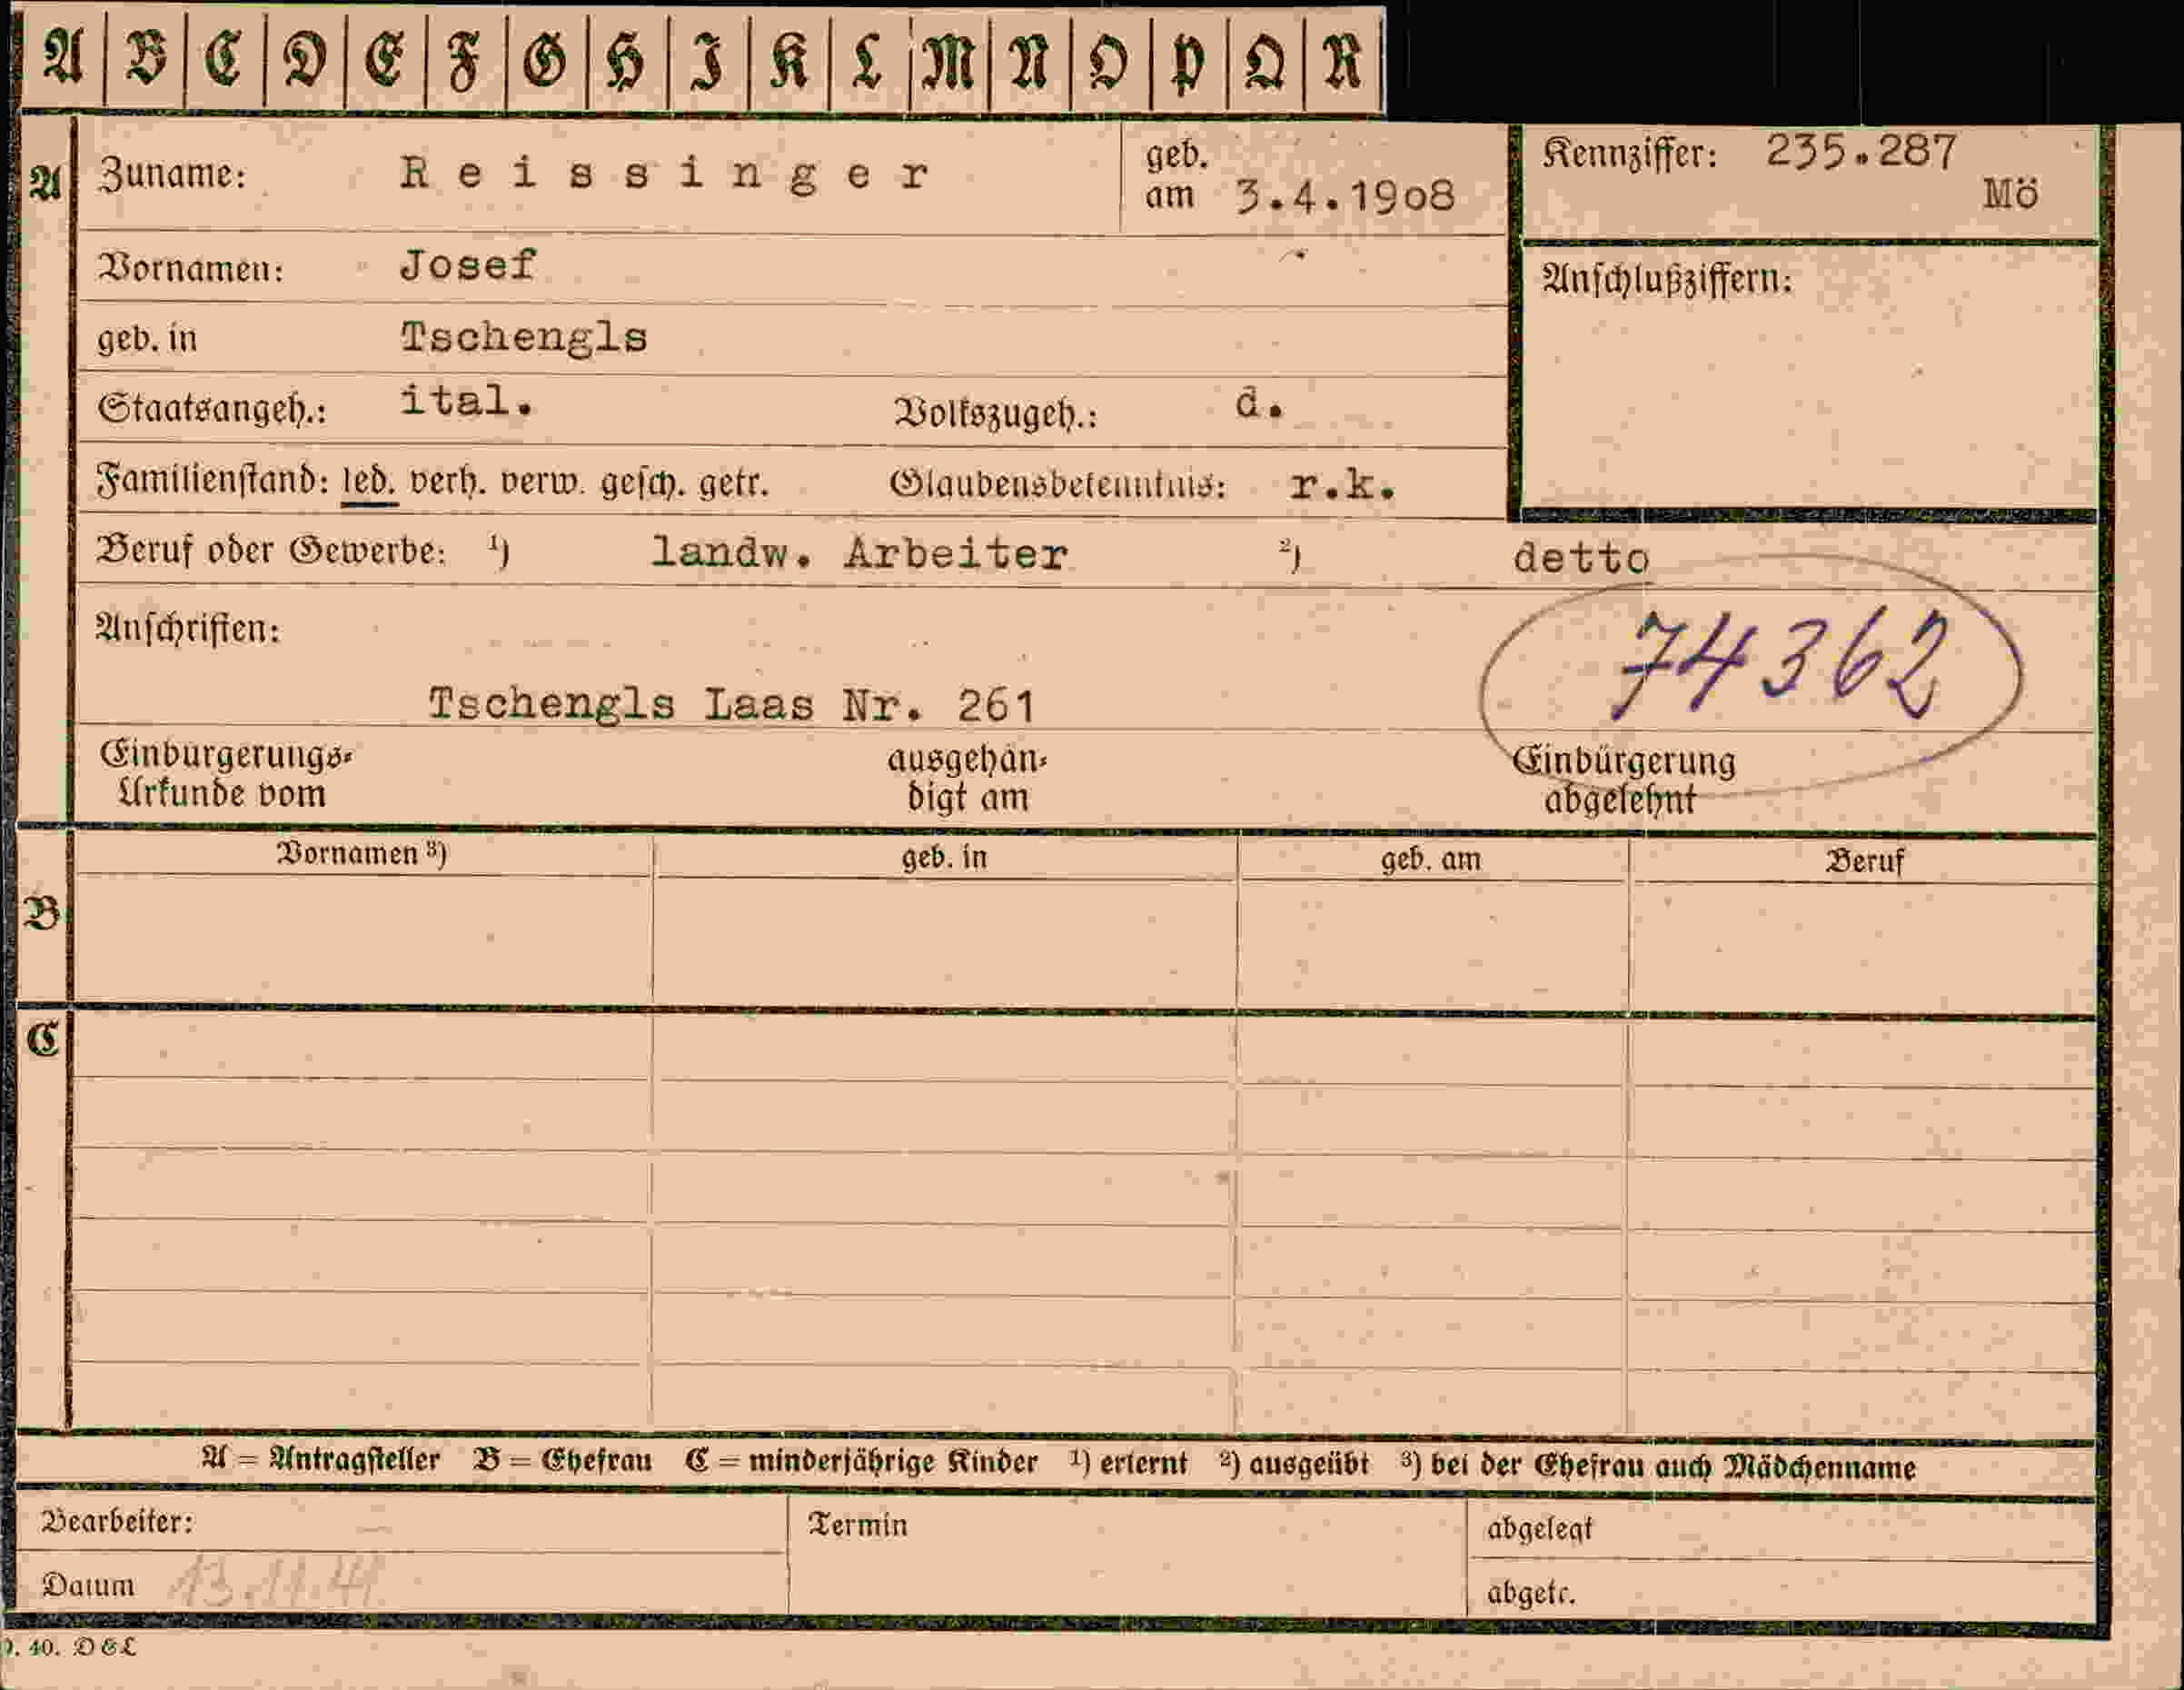 A B C D E F G H I K L M N O P Q R
A Zuname: Reissinger geb. am 3.4.1908 Kennziffer: 235.287 Mö
Vornamen: Josef Anschlußziffern:
geb. in Tschengls
Staatsangeh.: ital. Volkszugeh.: d.
Familienstand: led. verh. verw. gesch. getr. Glaubensbekenntnis: r.k.
Beruf oder Gewerbe: 1) landw. Arbeiter 2) detto
Anschriften:
74362
Tschengls Laas Nr. 261
Einbürgerungs- ausgehän- Einbürgerung
Urkunde vom digt am abgelehnt
Vornamen 3) geb. in geb. am Beruf
B
C
A = Antragsteller B = Ehefrau C = minderjährige Kinder 1) erlernt 2) ausgeübt 3) bei der Ehefrau auch Mädchenname
Bearbeiter: Termin abgelegt
Datum 13.11.41 abgetr.
40. DGL